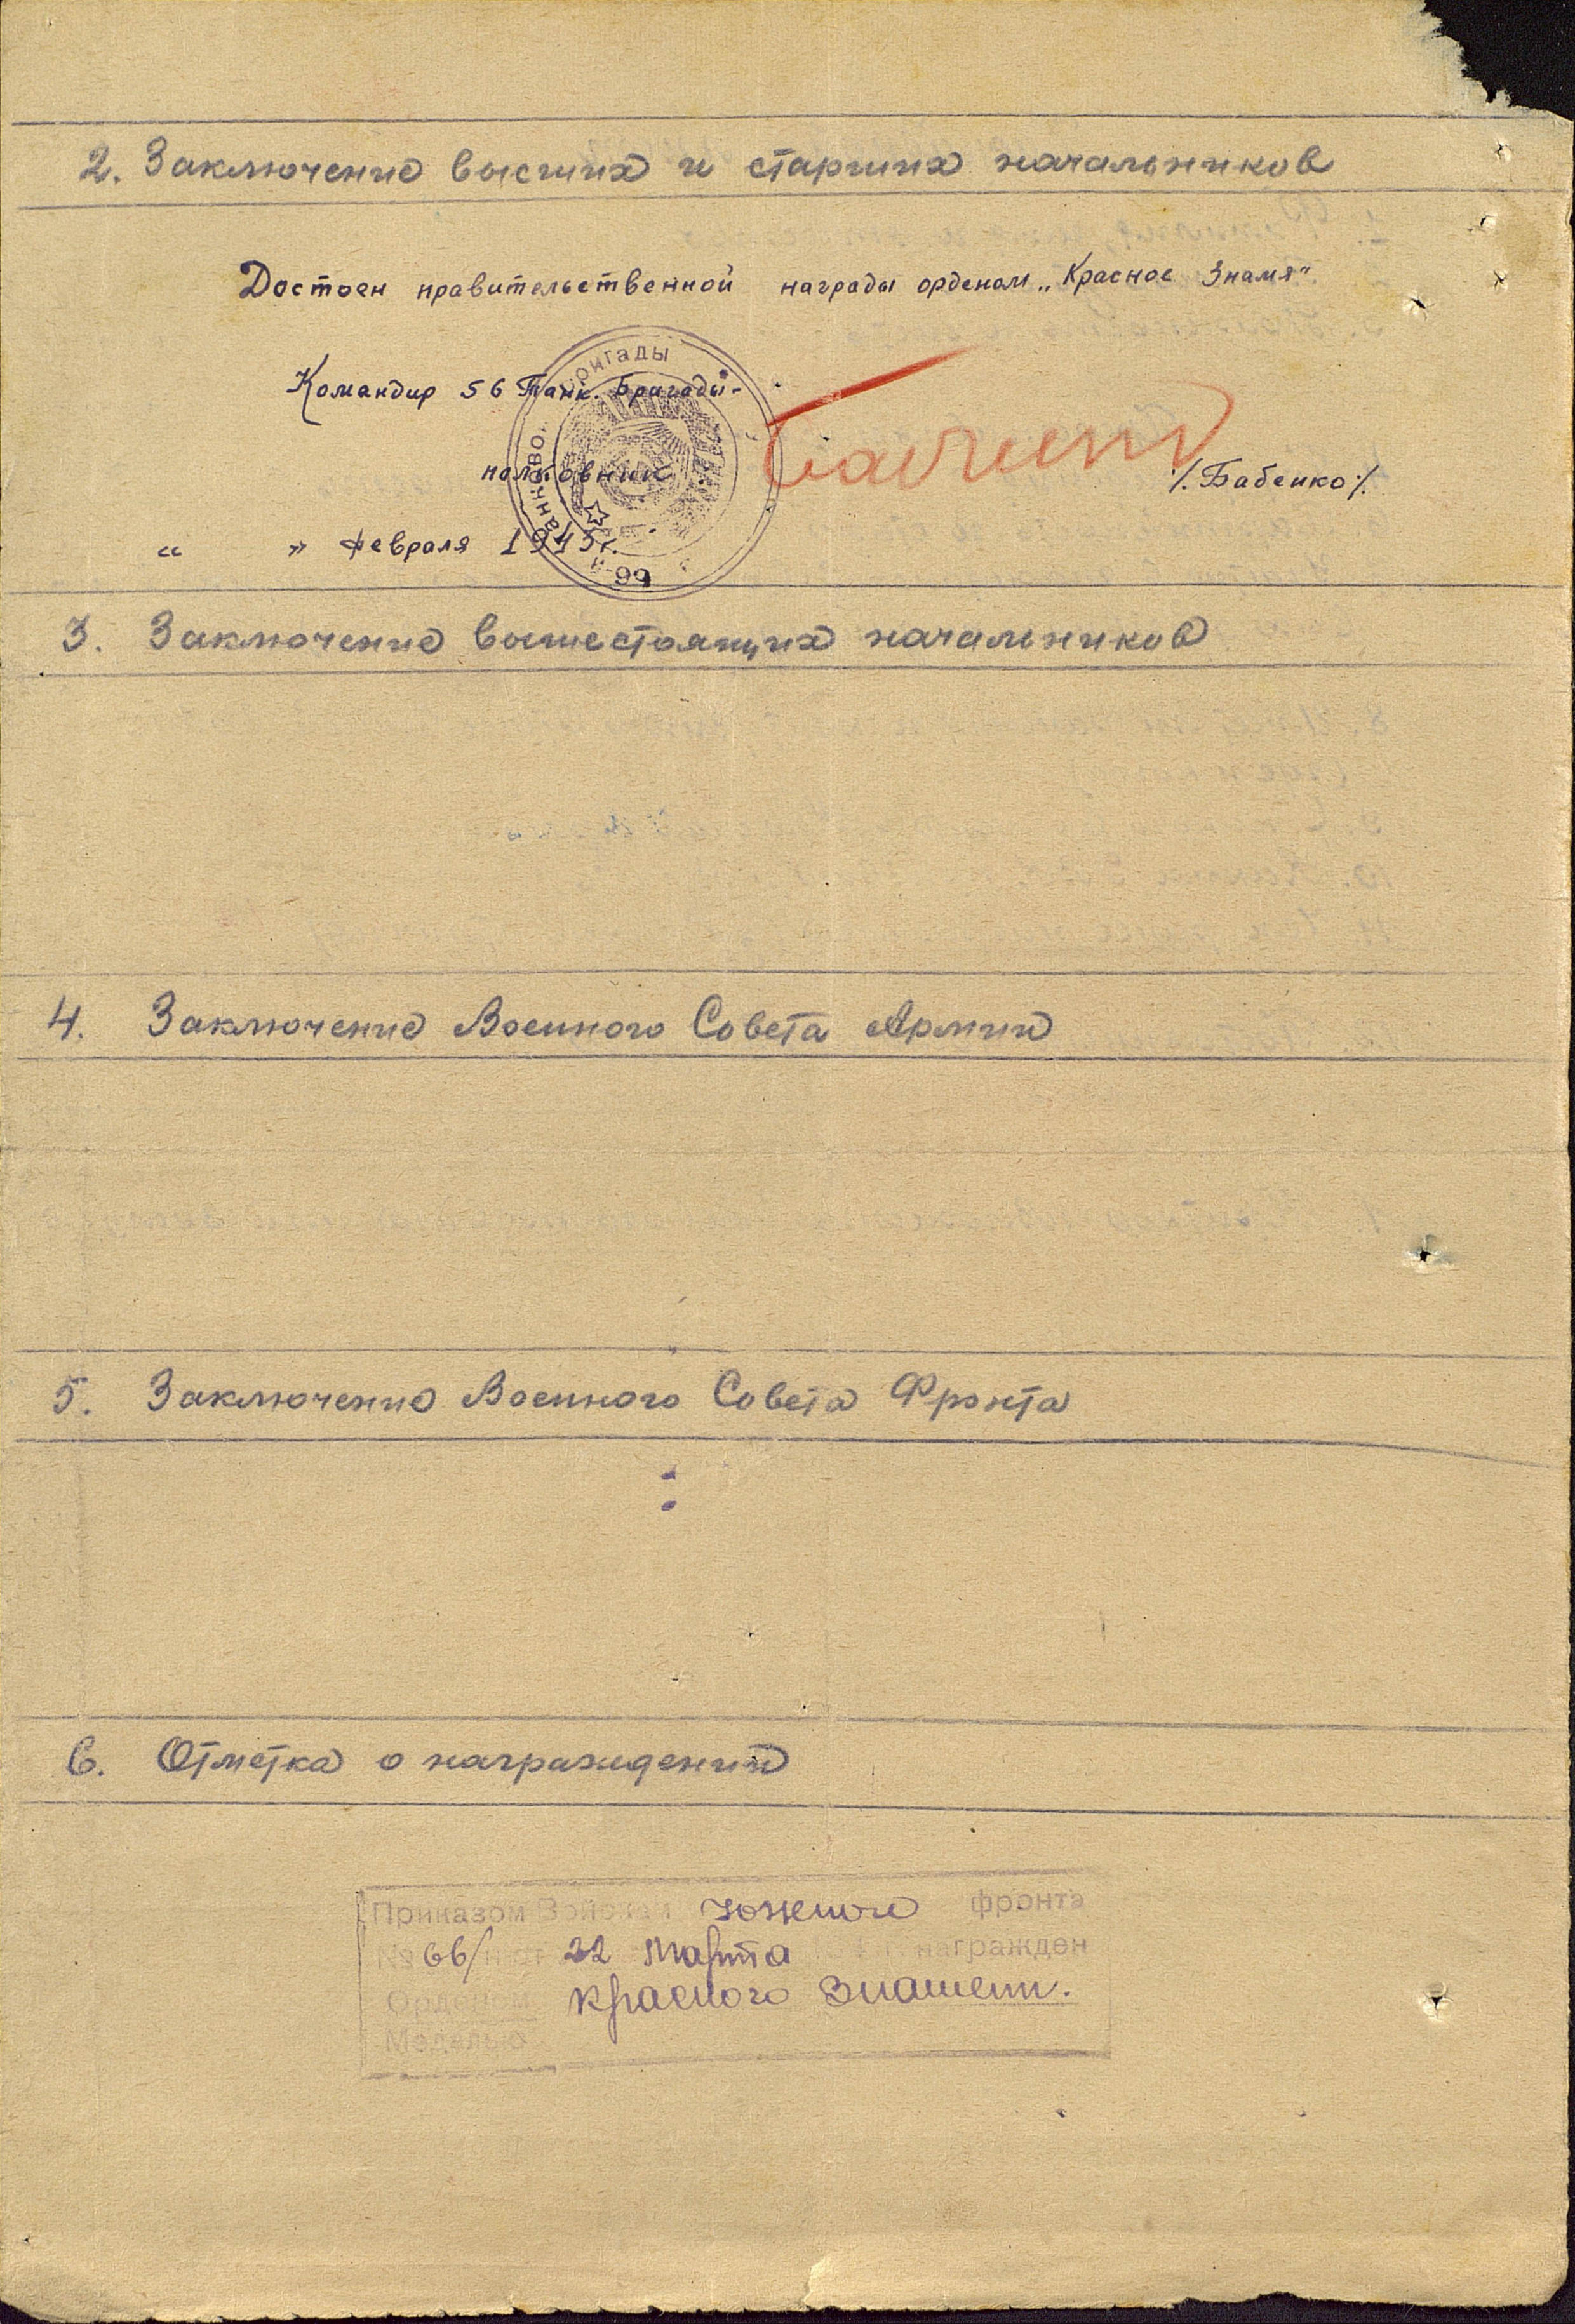 2. Заключение высших и старших начальников
Достоен правительственной награды орденом „Красное Знамя"
Командир 56 Танк. Бригады-
полковник
/. Бабенко /.
" " февраля 1943 г.
3. Заключение вышестоящих начальников
4. Заключение Военного Совета Армии
5. Заключение Военного Совета Фронта
6. Отметка о награждении
Приказом Войскам Южного фронта
№ 66/н от 22 марта награжден
Орденом Красного Знамени.
Медалью